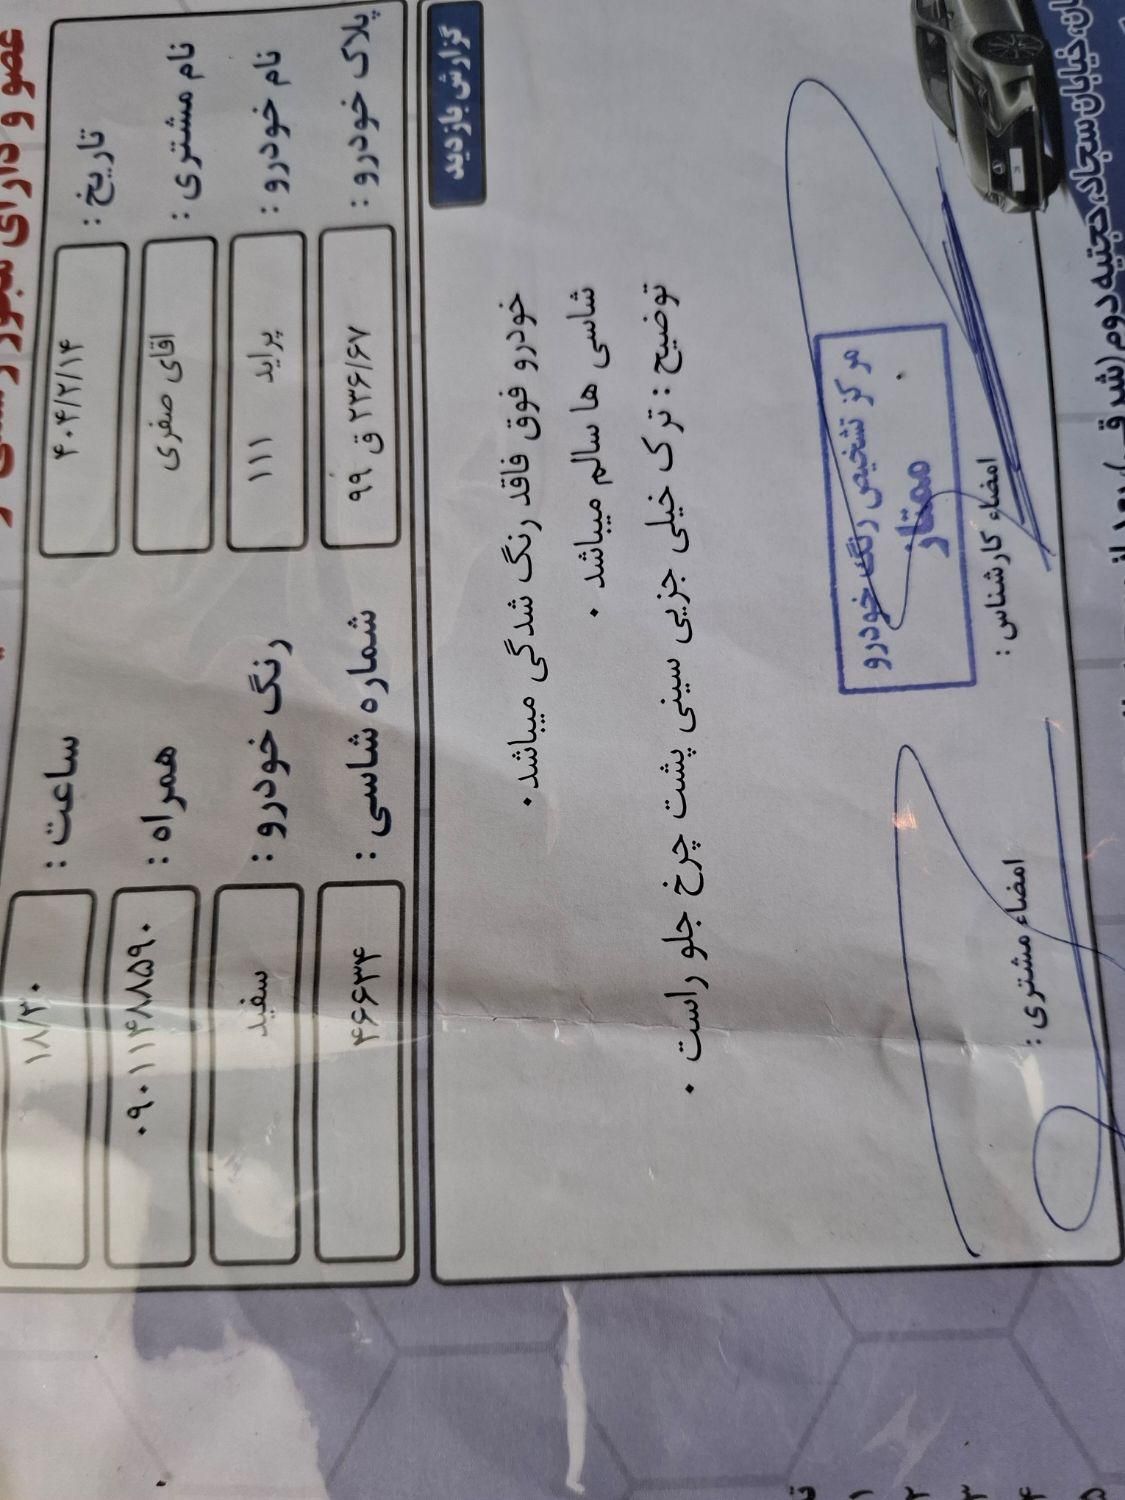 عضو و دارای مجوز رسمی از
تاریخ : ۴۰۴/۲/۱۴
ساعت : ۱۸/۳۰
نام مشتری : اقای صفری
همراه : ۰۹۰۱۱۴۸۸۵۹۰
نام خودرو : پراید ۱۱۱
رنگ خودرو : سفید
پلاک خودرو : ۲۳۶/۶۷ ق ۹۹
شماره شاسی : ۴۶۶۳۴
گزارش بازدید
خودرو فوق فاقد رنگ شدگی میباشد.
شاسی ها سالم میباشد .
توضیح : ترک خیلی جزیی سینی پشت چرخ جلو راست .
مرکز تشخیص رنگ خودرو
ممتاز
امضاء کارشناس :
امضاء مشتری :
خیابان سجاد، حجتیه دوم (شرقی)، بعد از
۱
۲
۳
۴
۵